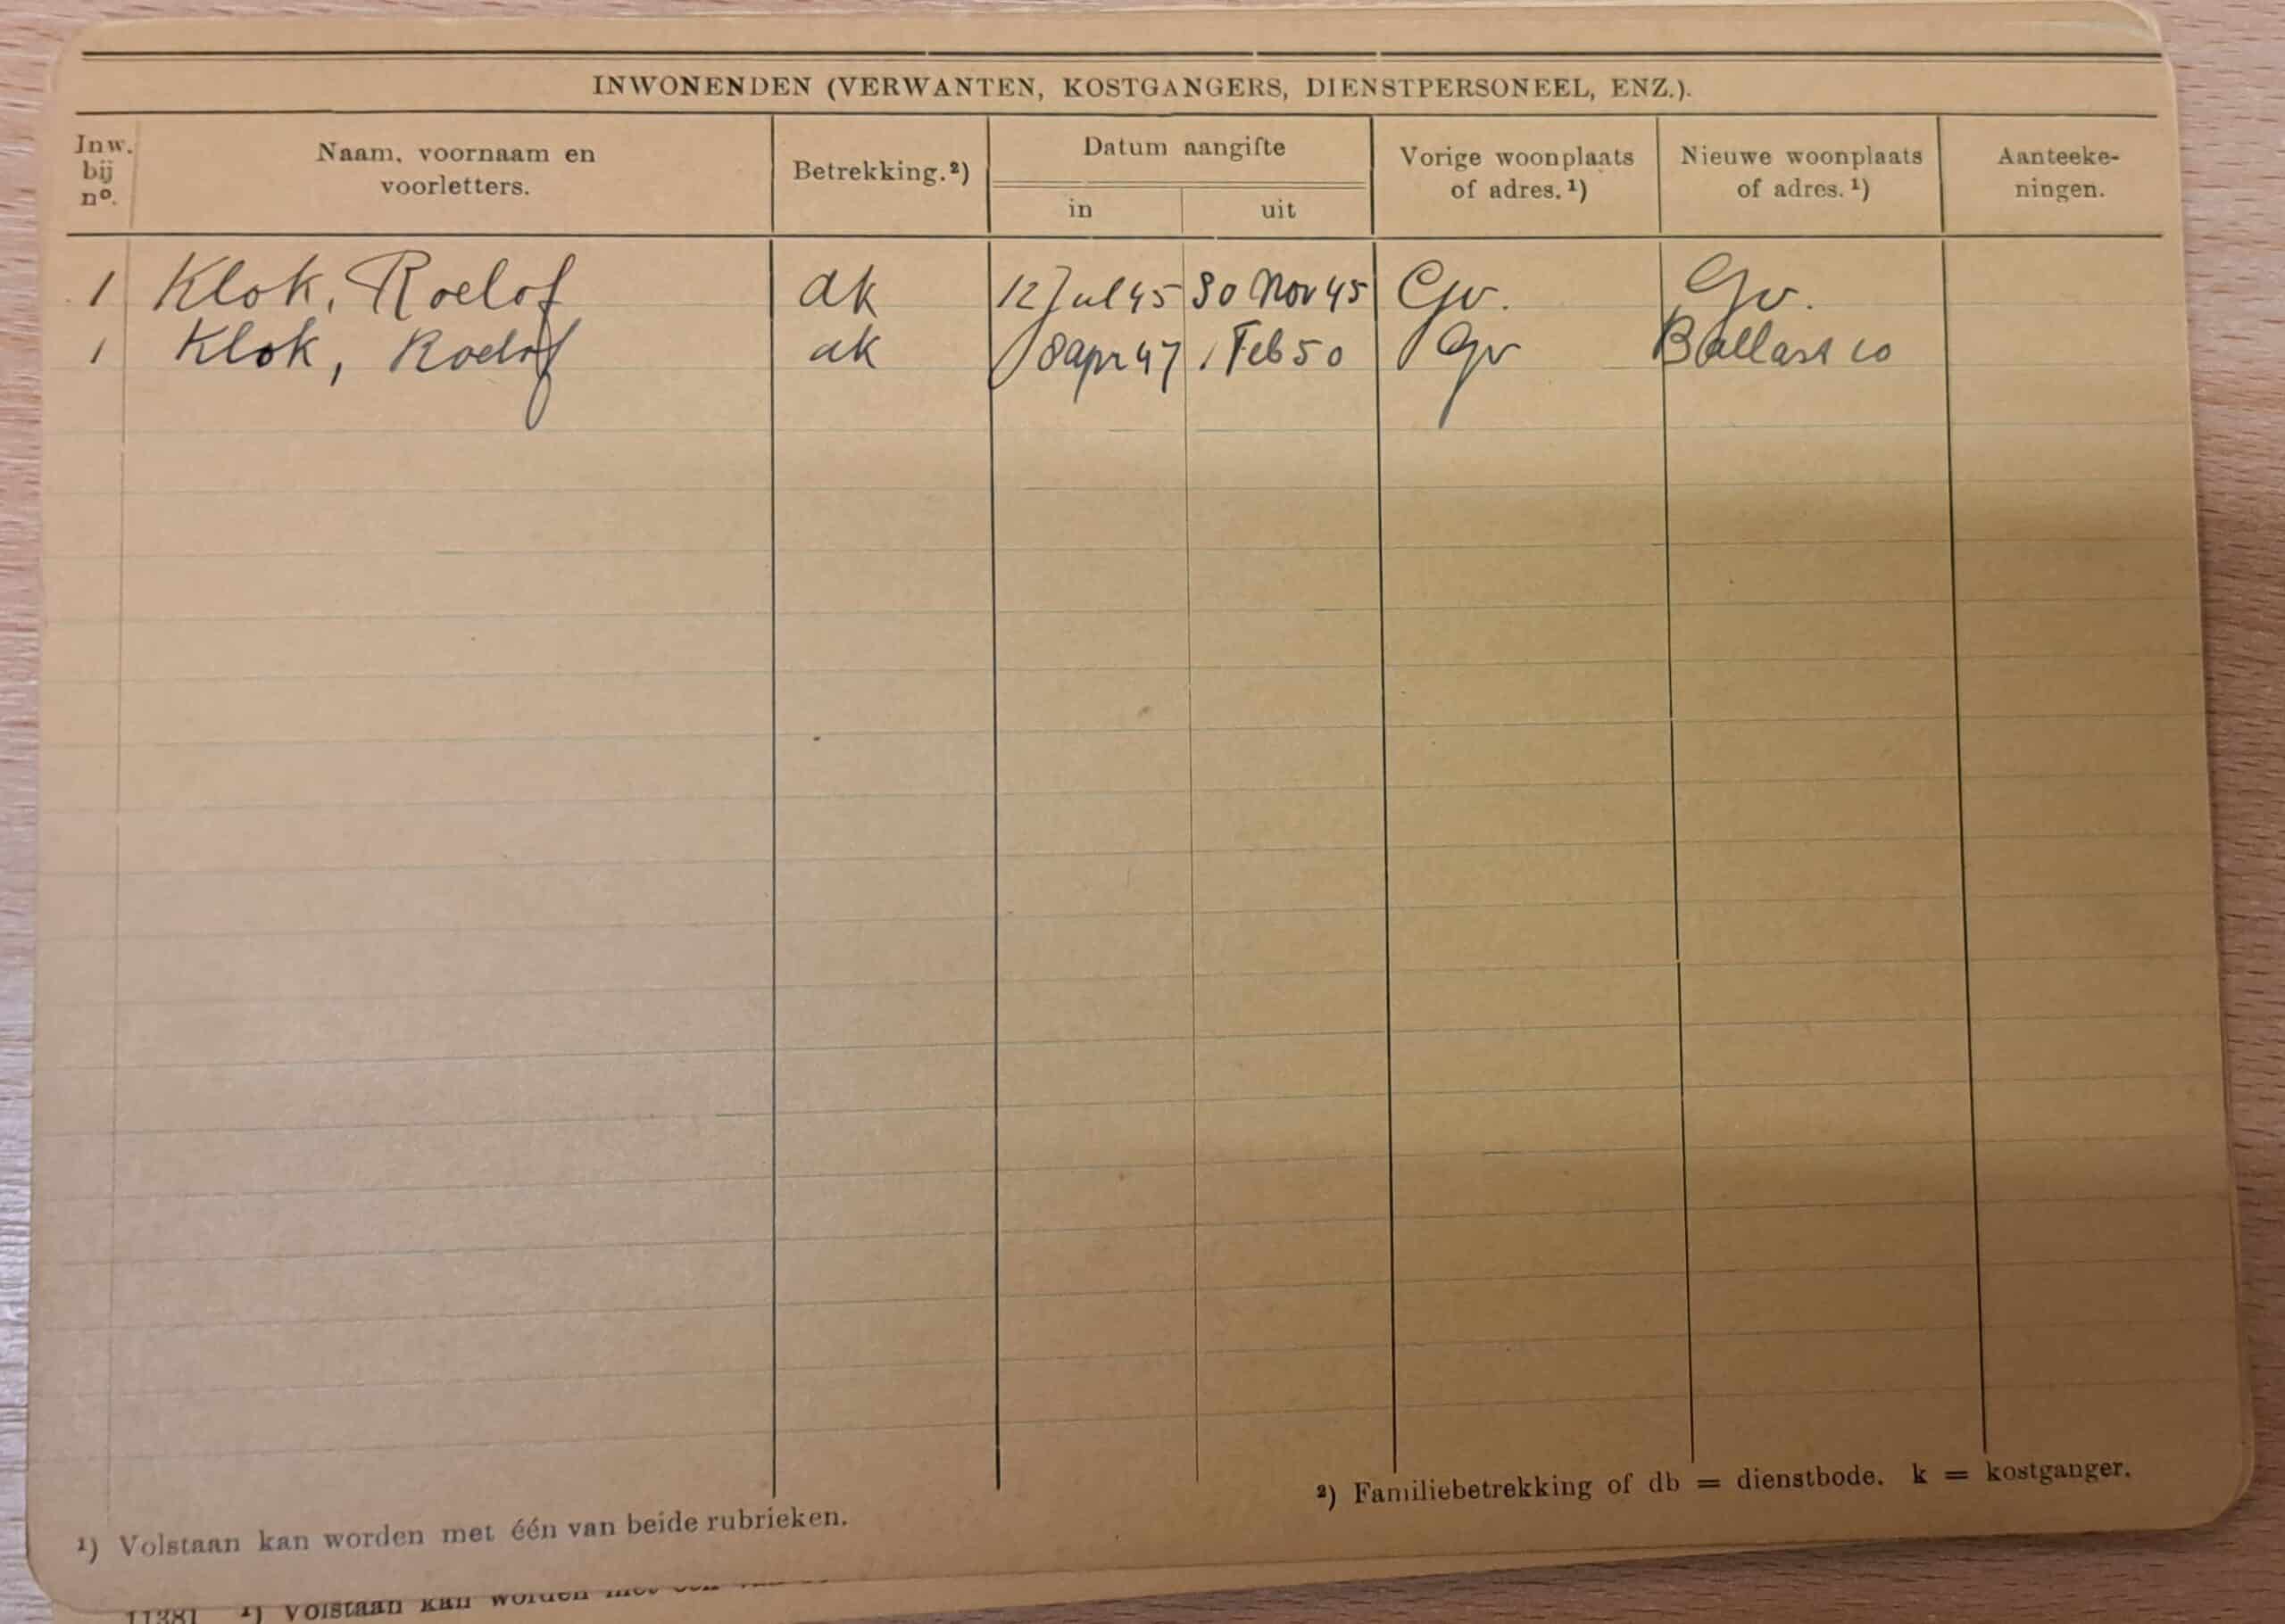 INWONENDEN (VERWANTEN, KOSTGANGERS, DIENSTPERSONEEL, ENZ.).
Inw. bij nº.
Naam, voornaam en voorletters.
Betrekking.²)
Datum aangifte
in
uit
Vorige woonplaats of adres.¹)
Nieuwe woonplaats of adres.¹)
Aanteeke-
ningen.
1 Klok, Roelof ak 12 Jul 45 30 Nov 45 Gv. Gv.
1 Klok, Roelof ak 8 apr 47 1 Feb 50 Gv Ballast 10
¹) Volstaan kan worden met één van beide rubrieken.
²) Familiebetrekking of db = dienstbode. k = kostganger.
11381 ¹) Volstaan kan worden met één